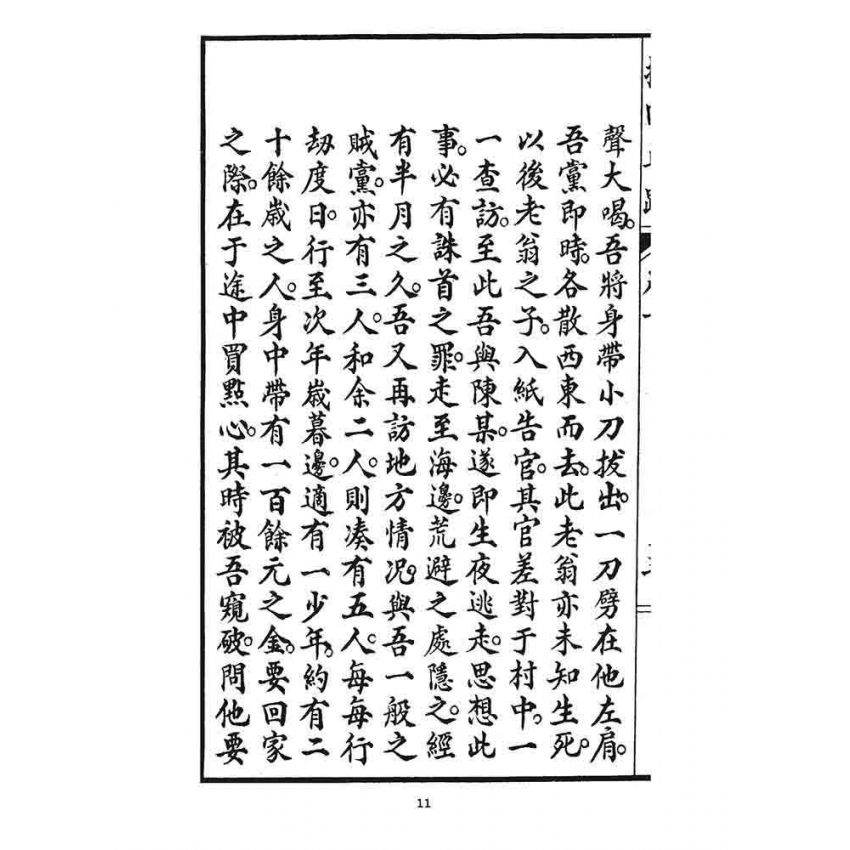 聲大喝。吾將身帶小刀拔出。一刀劈在他左肩。
吾黨即時。各散西東而去。此老翁亦未知生死。
以後老翁之子。入紙告官。其官差對于村中。一
一查訪。至此吾與陳某。遂即生夜逃走。思想此
事。必有誅首之罪。走至海邊。荒避之處隱之。經
有半月之久。吾又再訪地方情况。與吾一般之
賊黨。亦有三人。和余二人。則湊有五人。每每行
劫度日。行至次年歲暮邊。適有一少年。約有二
十餘歲之人。身中帶有一百餘元之金。要回家
之際。在于途中買點心。其時被吾窺破。問他要
11